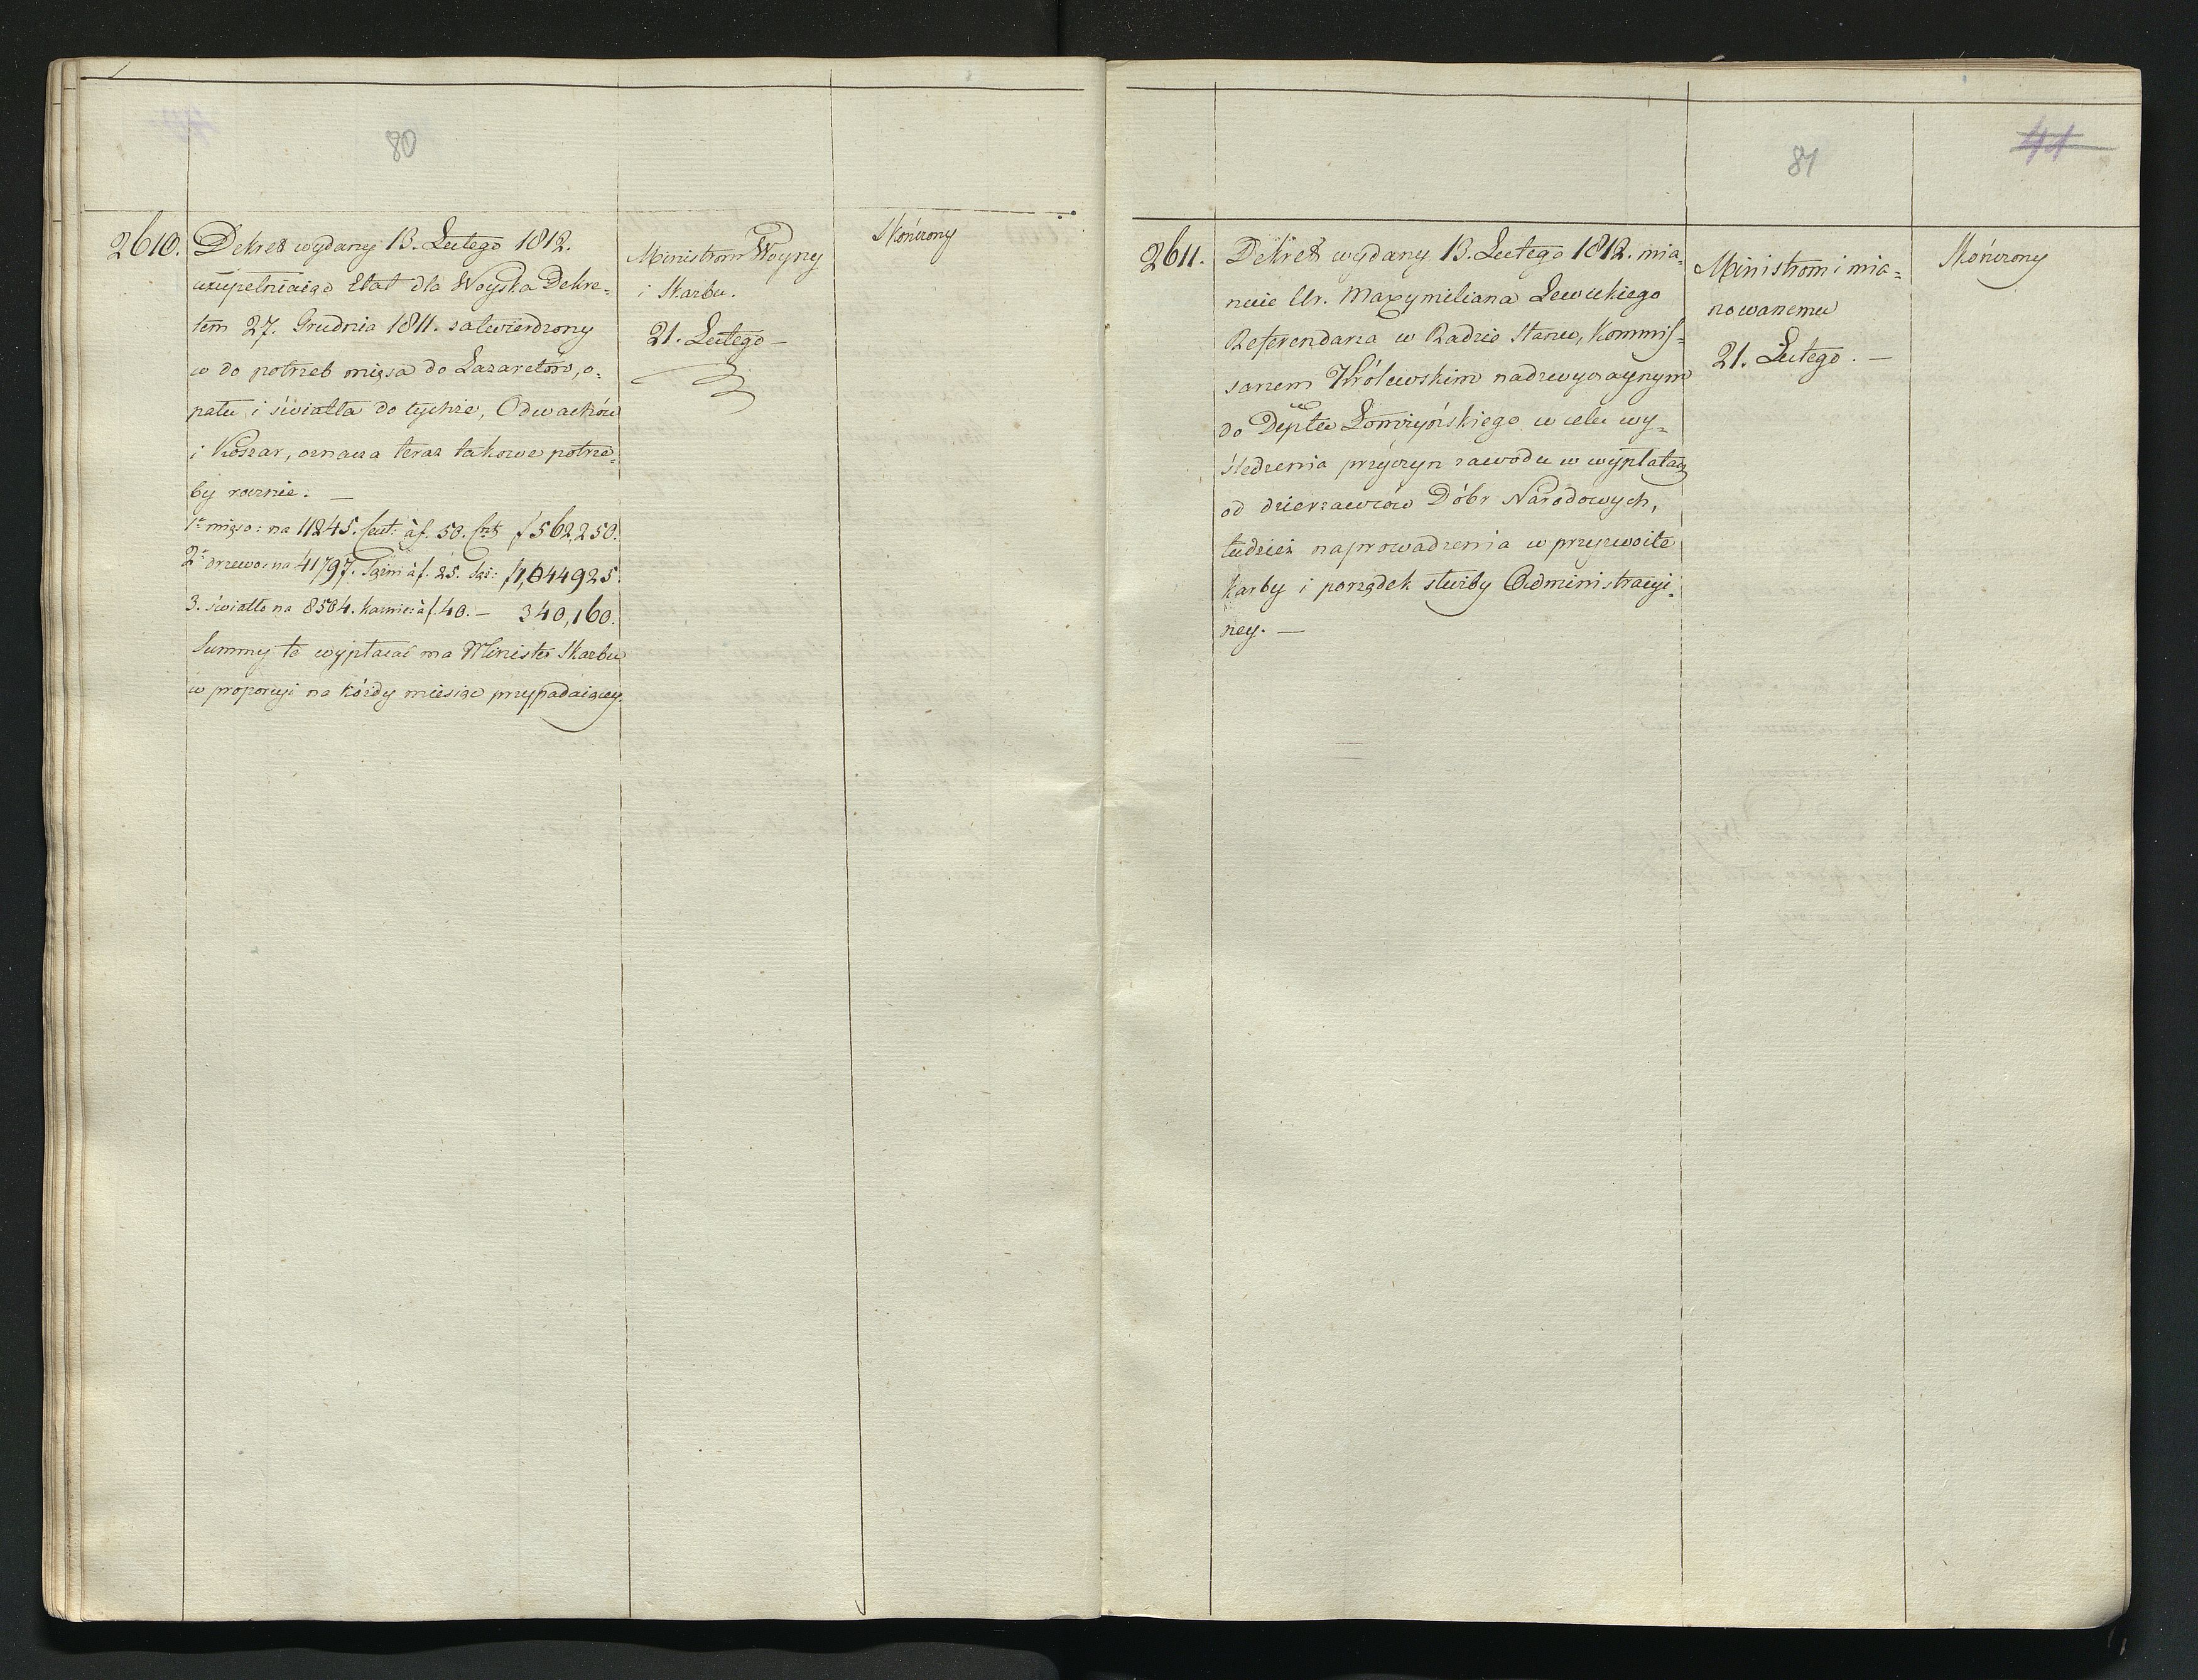 80
2610.
Dekret wydany 13. Lutego 1812.
uzupełniaiąc Etat dla Woyska Dekre-
tem 27. Grudnia 1811. zatwierdzony
co do potrzeb mięsa do Lazaretów, o-
pału i światła do tychże, Odwachów
i Koszar, oznacza teraz takowe potrze-
by rocznie: —
1° mięso: na 11245. Cent: à f. 50. f 562,250.
2° drzewo: na 41797. Sążni à f. 25. f 1,044925.
3. światło na 8504. kamie: à f. 40. — 340,160.
Summy te wypłacać ma Minister Skarbu
w proporcyi na każdy miesiąc przypadaiącey.
Ministrom Woyny
i Skarbu.
21. Lutego —
Skończony
81
41
2611.
Dekret wydany 13. Lutego 1812. mia-
nuie Ur. Maxymiliana Lewickiego
Referendarza w Radzie Stanu, Kommis-
sarzem Królewskim nadzwyczaynym
do Deptu Łomżyńskiego w celu wy-
śledzenia przyczyn zawodu w wypłatach
od dzierzawców Dóbr Narodowych,
tudzież naprowadzenia w przyzwoite
karby i porządek służby Administracyi-
ney. —
Ministrom i mia-
nowanemu
21. Lutego. —
Skończony